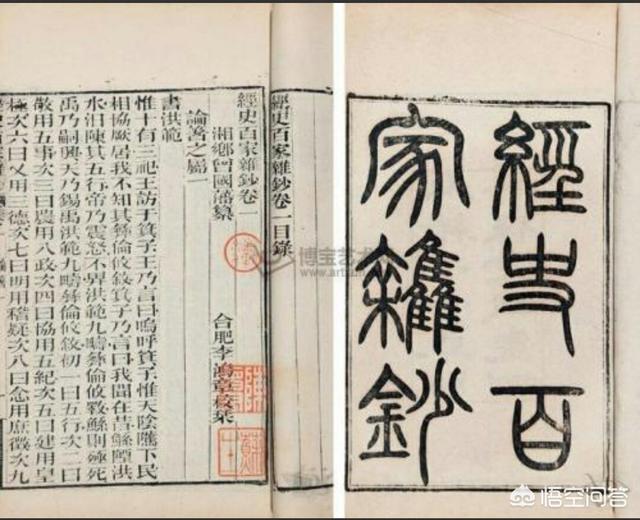 經史百
家雜鈔
經史百家雜鈔卷一目錄
經史百家雜鈔卷一
湘鄉曾國藩纂
合肥李鴻章校栞
論著之屬一
書洪範
惟十有三祀王訪于箕子王乃言曰嗚呼箕子惟天陰騭下民
相協厥居我不知其彝倫攸敘箕子乃言曰我聞在昔鯀陻洪
水汨陳其五行帝乃震怒不畀洪範九疇彝倫攸斁鯀則殛死
禹乃嗣興天乃錫禹洪範九疇彝倫攸敘初一曰五行次二曰
敬用五事次三曰農用八政次四曰協用五紀次五曰建用皇
極次六曰乂用三德次七曰明用稽疑次八曰念用庶徵次九
博宝艺术
悟空问答